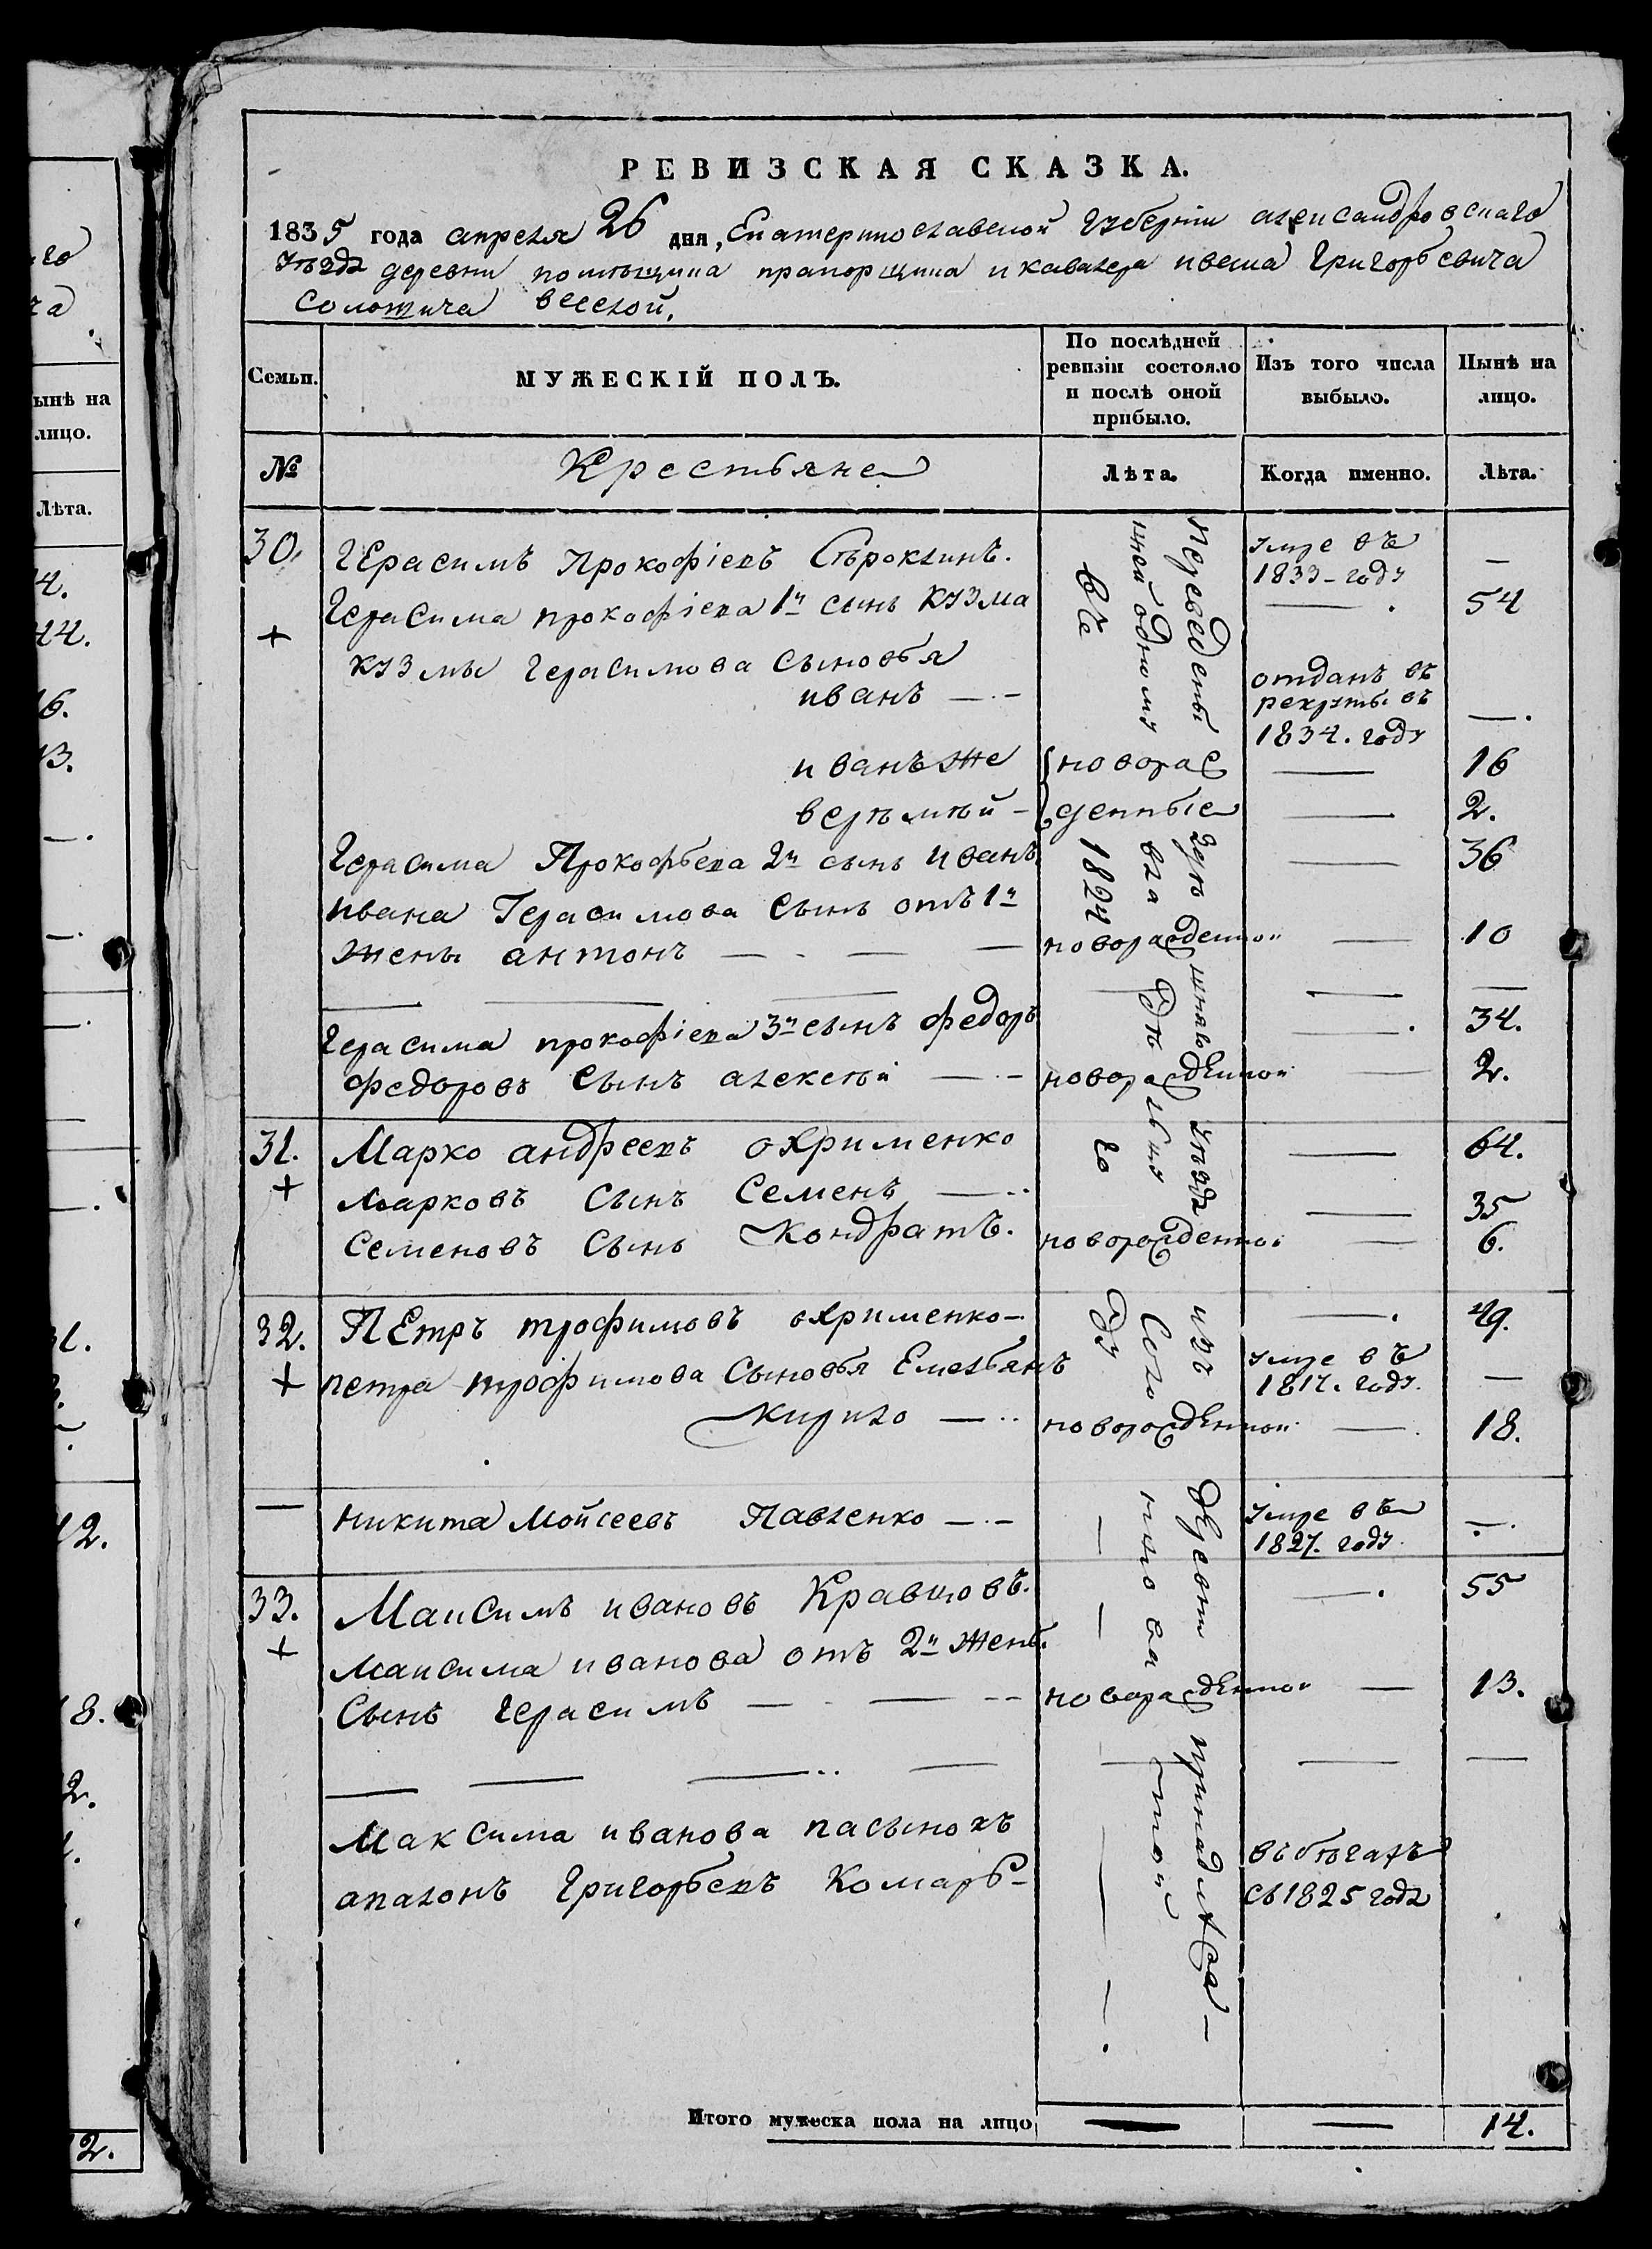 РЕВИЗСКАЯ СКАЗКА.
1835 года апреля 26 дня, Екатеринославской губернiи александровскаго
уѣзда деревни помѣщика прапорщика и кавалера ивана Григорьевича
веселой.
Семьи.
МУЖЕСКІЙ ПОЛЪ.
По послѣдней
ревизіи состояло
и послѣ оной
прибыло.
Изъ того числа
выбыло.
Нынѣ на
лицо.
№
Крестьяне
Лѣта.
Когда именно.
Лѣта.
30.
Герасимъ Прокофіевъ
умре въ
1833 - году
—
Герасима прокофіева 1й сынъ кузма
—
54
+
кузмы герасимова сыновья
иванъ —
отданъ въ
рекруты въ
1834. году
—.
иванъ же
новорож
—
16
веремѣй —
денные
—
2.
Герасима Прокофьева 2й сынъ иванъ
—
36
ивана Герасимова сынъ отъ 1й
жены антонъ — — —
новорожденной
—
10
Герасима прокофіева 3й сынъ федоръ
—.
34.
федоровъ сынъ алексѣй — —
новорожденной
—
2.
31.
Марко андреевъ охрименко
—
64.
+
марковъ сынъ Семенъ —
—
35
Семеновъ сынъ Кондратъ.
новорожденной
—
6.
32.
Петръ трофимовъ охрименко —
—.
49.
+
петра трофимова сыновья Емельянъ
умре въ
1817. году.
—
Кирило —
новорожденной
—.
18.
—
никита Мойсеевъ Павленко — —
—
умре въ
1827. году.
—.
33.
Максимъ ивановъ Кравцовъ.
—
—.
55
+
максима иванова отъ 2й жены
сынъ герасимъ — — —
новорожденной
—
13.
Максима иванова пасынокъ
григорьевъ Комаръ —
въ бѣгахъ
съ 1825 года
переведены
1824
году
изъ
деревни
Итого мужеска пола на лицо
—
—
14.
ынѣ на
лицо.
Лѣта.
4.
44.
6.
13.
12.
8.
2.
12.